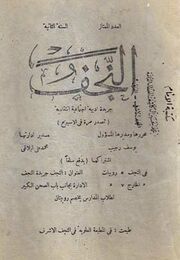 العدد الممتاز السنة الثانية
النجف
جريدة ادبية اجتماعية انتقادية
(تصدر مرة في الاسبوع)
محررها ومديرها المسؤول
يوسف رجيب
مدير ادارتها
محمد علي البلاغي
اشتراكها (يدفع سلفاً)
في النجف روبيات العنوان: النجف جريدة النجف
الخارج الادارة بجانب باب الصحن الكبير
لطلاب المدارس بخصم روبيتان
طبعت: في المطبعة العلوية في النجف الاشرف